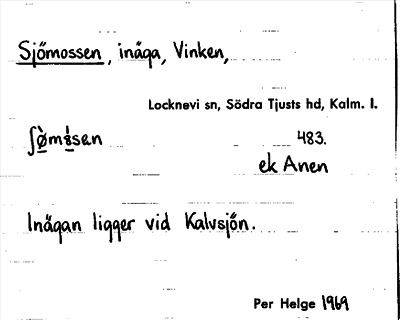 Sjömossen, inäga, Vinken,
Locknevi sn, Södra Tjusts hd, Kalm. l.
483.
ek Anen
Inägan ligger vid Kalvsjön.
Per Helge 1969